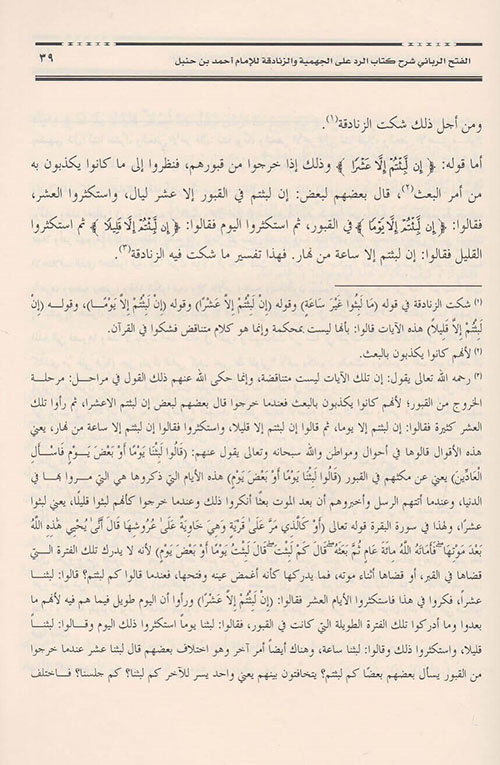 الفتح الرباني شرح كتاب الرد على الجهمية والزنادقة للإمام أحمد بن حنبل
٣٩
ومن أجل ذلك شكت الزنادقة(١).
أما قوله: ﴿ إِن لَّبِثْتُمْ إِلَّا عَشْرًا ﴾ وذلك إذا خرجوا من قبورهم، فنظروا إلى ما كانوا يكذبون به
من أمر البعث(٢)، قال بعضهم لبعض: إن لبثتم في القبور إلا عشر ليال، واستكثروا العشر،
فقالوا: ﴿ إِن لَّبِثْتُمْ إِلَّا يَوْمًا ﴾ في القبور، ثم استكثروا اليوم فقالوا: ﴿ إِن لَّبِثْتُمْ إِلَّا قَلِيلًا ﴾ ثم استكثروا
القليل فقالوا: إن لبثتم إلا ساعة من نهار. فهذا تفسير ما شكت فيه الزنادقة(٣).
(١) شكت الزنادقة في قوله (مَا لَبِثُوا غَيْرَ سَاعَةٍ) وقوله (إِنْ لَبِثْتُمْ إِلاَّ عَشْرًا) وقوله (إِنْ لَبِثْتُمْ إِلاَّ يَوْمًا)، وقوله (إِنْ
لَبِثْتُمْ إِلاَّ قَلِيلاً) هذه الآيات قالوا: بأنها ليست بمحكمة وإنما هو كلام متناقض فشكوا في القرآن.
(٢) لأنهم كانوا يكذبون بالبعث.
(٣) رحمه الله تعالى يقول: إن تلك الآيات ليست متناقضة، وإنما حكى الله عنهم ذلك القول في مراحل: مرحلة
الخروج من القبور؛ لأنهم كانوا يكذبون بالبعث فعندما خرجوا قال بعضهم لبعض إن لبثتم الاعشرا، ثم رأوا تلك
العشر كثيرة فقالوا: إن لبثتم إلا يوما، ثم قالوا إن لبثتم إلا قليلا، واستكثروا فقالوا إن لبثتم إلا ساعة من نهار، يعني
هذه الأقوال قالوها في أحوال ومواطن والله سبحانه وتعالى يقول عنهم: (قَالُوا لَبِثْنَا يَوْمًا أَوْ بَعْضَ يَوْمٍ فَاسْأَلِ
الْعَادِّينَ) يعني عن مكثهم في القبور (قَالُوا لَبِثْنَا يَوْمًا أَوْ بَعْضَ يَوْمٍ) هذه الأيام التي ذكروها هي التي مروا بها في
الدنيا، وعندما أتتهم الرسل وأخبروهم أن بعد الموت بعثًا أنكروا ذلك وعندما خرجوا كأنهم لبثوا قليلًا، يعني لبثوا
عشرًا، ولهذا في سورة البقرة قوله تعالى (أَوْ كَالَّذِي مَرَّ عَلَىٰ قَرْيَةٍ وَهِيَ خَاوِيَةٌ عَلَىٰ عُرُوشِهَا قَالَ أَنَّىٰ يُحْيِي هَٰذِهِ اللَّهُ
بَعْدَ مَوْتِهَا ۖ فَأَمَاتَهُ اللَّهُ مِائَةَ عَامٍ ثُمَّ بَعَثَهُ ۖ قَالَ كَمْ لَبِثْتَ ۖ قَالَ لَبِثْتُ يَوْمًا أَوْ بَعْضَ يَوْمٍ) لأنه لا يدرك تلك الفترة التي
قضاها في القبر، أو قضاها أثناء موته، فما يدركها كأنه أغمض عينه وفتحها، فعندما قالوا كم لبثتم؟ قالوا: لبثنا
عشراً، فكروا في هذا فاستكثروا الأيام العشر فقالوا: (إِنْ لَبِثْتُمْ إِلاَّ عَشْرًا) ورأوا أن اليوم طويل فيما هم فيه لأنهم ما
بعدوا وما أدركوا تلك الفترة الطويلة التي كانت في القبور، فقالوا: لبثنا يوماً استكثروا ذلك اليوم وقالوا: لبثناً
قليلا، واستكثروا ذلك وقالوا: لبثنا ساعة، وهناك أيضاً أمر آخر وهو اختلاف بعضهم قال لبثنا عشر عندما خرجوا
من القبور يسأل بعضهم بعضًا كم لبثتم؟ يتخافتون بينهم يعني واحد يسر للآخر كم لبثنا؟ كم جلسنا؟ فاختلف